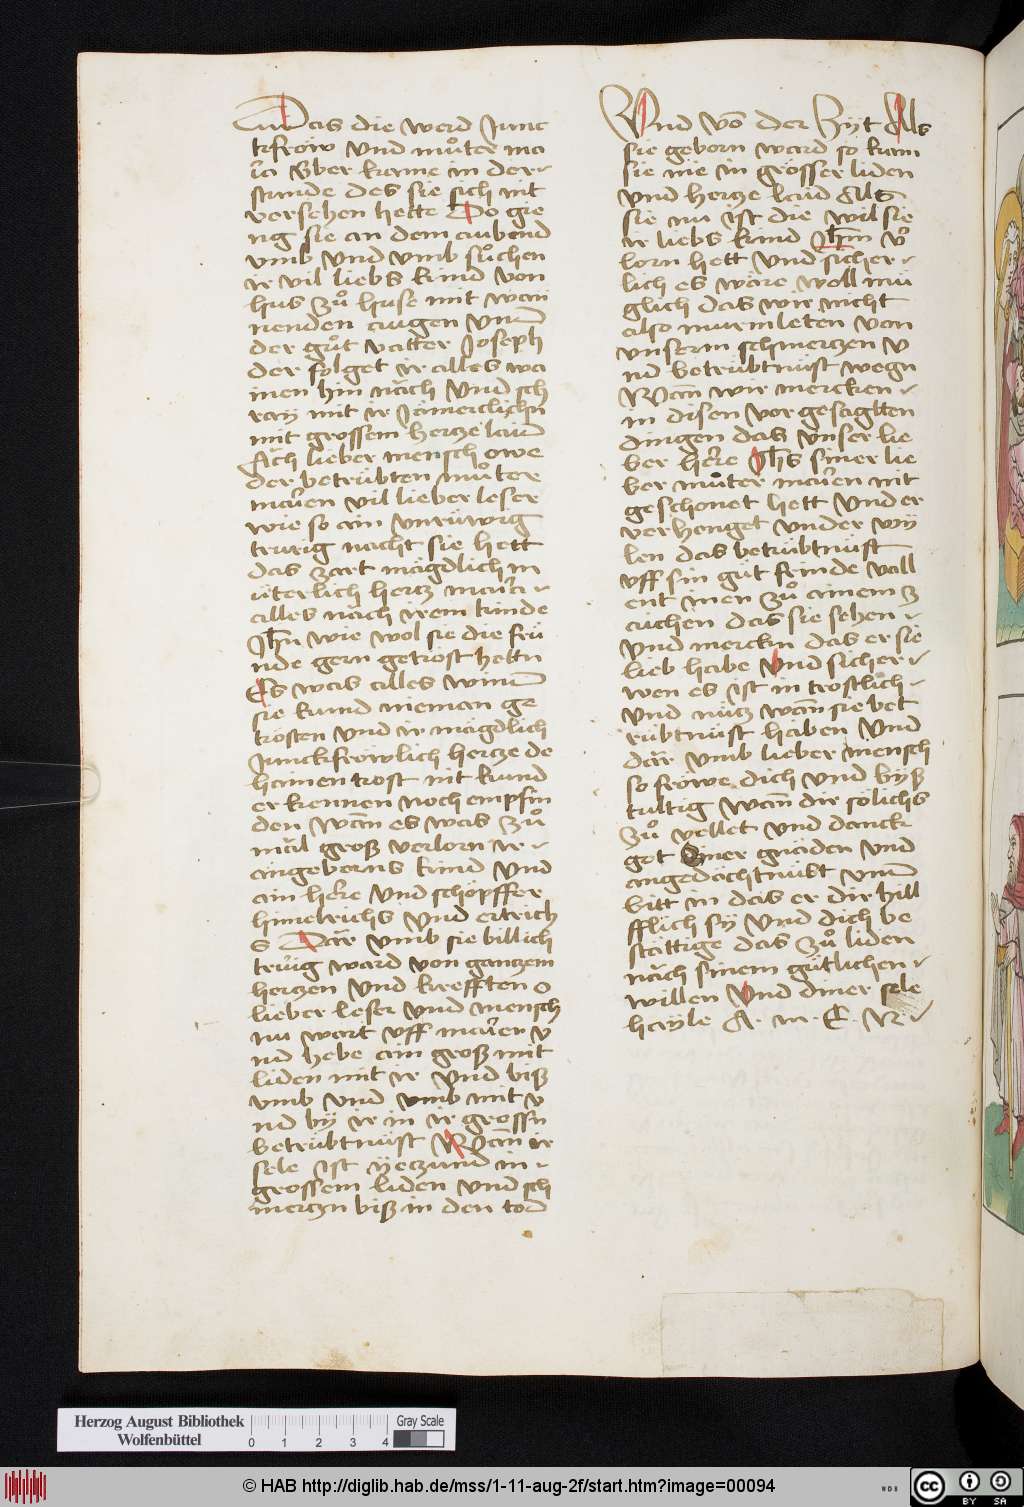 Das die werd Junc
kfröw vnd můter ma
ria Vber kame in der
stunde des sie sich nit
versehen hette Do gie
ng sie an dem aubend
vmb vnd vmb sůchen
ir vil liebs kind von
hus zů huse mit wai
nenden augen vnnd
der gůt vatter Joseph
der folget ir alles wa
inen hin näch Vnd sch
ray mit ir Jämerclichn
mit grossem hertze laid
Ach lieber mensch owe
der betrübten můter
marien vil lieber leser
wie so ain vnrüwig
trurig nacht sie hett
das zart mägdlich m
üterlich hertz maria
alles näch irem kinde
Jhu wie wol sie die frü
nde gern getröst hettn
Es was alles wind
sie kund nieman ge
trösten vnd ir mägdlich
Junckfröwlich hertze de
hainen trost nit kund
er kennen noch empfin
den Wann es was zů
mäl groß verlorn ir
aingeborns kind Vnd
ain here Vnd schöpffer
himelrichs Vnd ertrich
s Där vmb sie billich
trurig ward von gantzem
hertzen Vnd krefften o
lieber leser Vnd mensch
nu wart vff marien v
nd hebe ain groß mit
liden mit ir Vnd biß
vmb Vnd vmb mit v
nd by ir in ir grossn
betrübtnüst Wann ir
sele ist yeczund in
grossem liden vnd sch
mertzn biß in den tod
Vnd võ der Zÿt Als
sie geborn ward so kam
sie nie in grösser liden
Vnd hertze laid Als
sie nu ist die wil sie
ir liebs kind Jhm v
lorn hett Vnd sicher
lich es wäre woll mü
glich das wir nicht
also murmleten von
vnserm schmertzen v
nd betrübtnüst wegn
Wann wir mercken
in disen vor gesagtten
dingen das vnser lie
ber here Jhs siner lie
ber můter marien nit
geschonet hett Vnd er
verhenget vnder wÿ
len das betrübtnüst
vff sin gůt frinde vall
ent inen zů ainem z
aichen das sie sehen
Vnd merckn das er sie
lieb habe Vnd sicher
wen es ist in trostlich
Vnd nütz wann sie bet
rübtnüst haben Vnd
där vmb lieber mensch
so fröwe dich vnd byß
tultig wann dir sölichs
zů vellet vnd danck
got siner gnäden vnd
angedächtnüst vnnd
bitt in das er dir hill
fflich sÿ Vnd dich be
stättige das zů liden
näch sinem gůtlichen
willen Vnd diner sele
hayle A · m · E · N ·
Herzog August Bibliothek
Wolfenbüttel
0 1 2 3 4
Gray Scale
© HAB http://diglib.hab.de/mss/1-11-aug-2f/start.htm?image=00094
WDB
cc BY SA